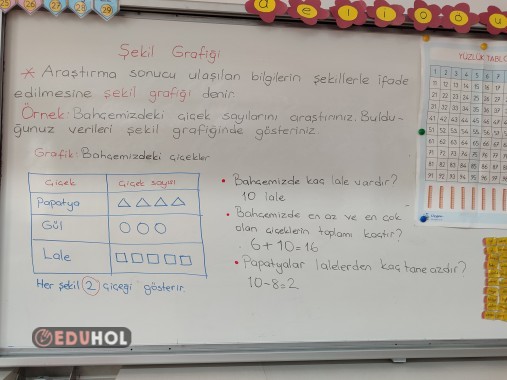 25 26 27 28 29
a e ı i o ö u
YÜZLÜK TABLO
Şekil Grafiği
* Araştırma sonucu ulaşılan bilgilerin şekillerle ifade
edilmesine şekil grafiği denir.
Örnek: Bahçemizdeki çiçek sayılarını araştırınız. Buldu-
ğunuz verileri şekil grafiğinde gösteriniz.
Grafik: Bahçemizdeki çiçekler
Çiçek Çiçek sayısı
Papatya
Gül
Lale
Her şekil 2 çiçeği gösterir.
• Bahçemizde kaç lale vardır?
10 lale
• Bahçemizde en az ve en çok
olan çiçeklerin toplamı kaçtır?
6+10=16
• Papatyalar lalelerden kaç tane azdır?
10-8=2
EDUHOL